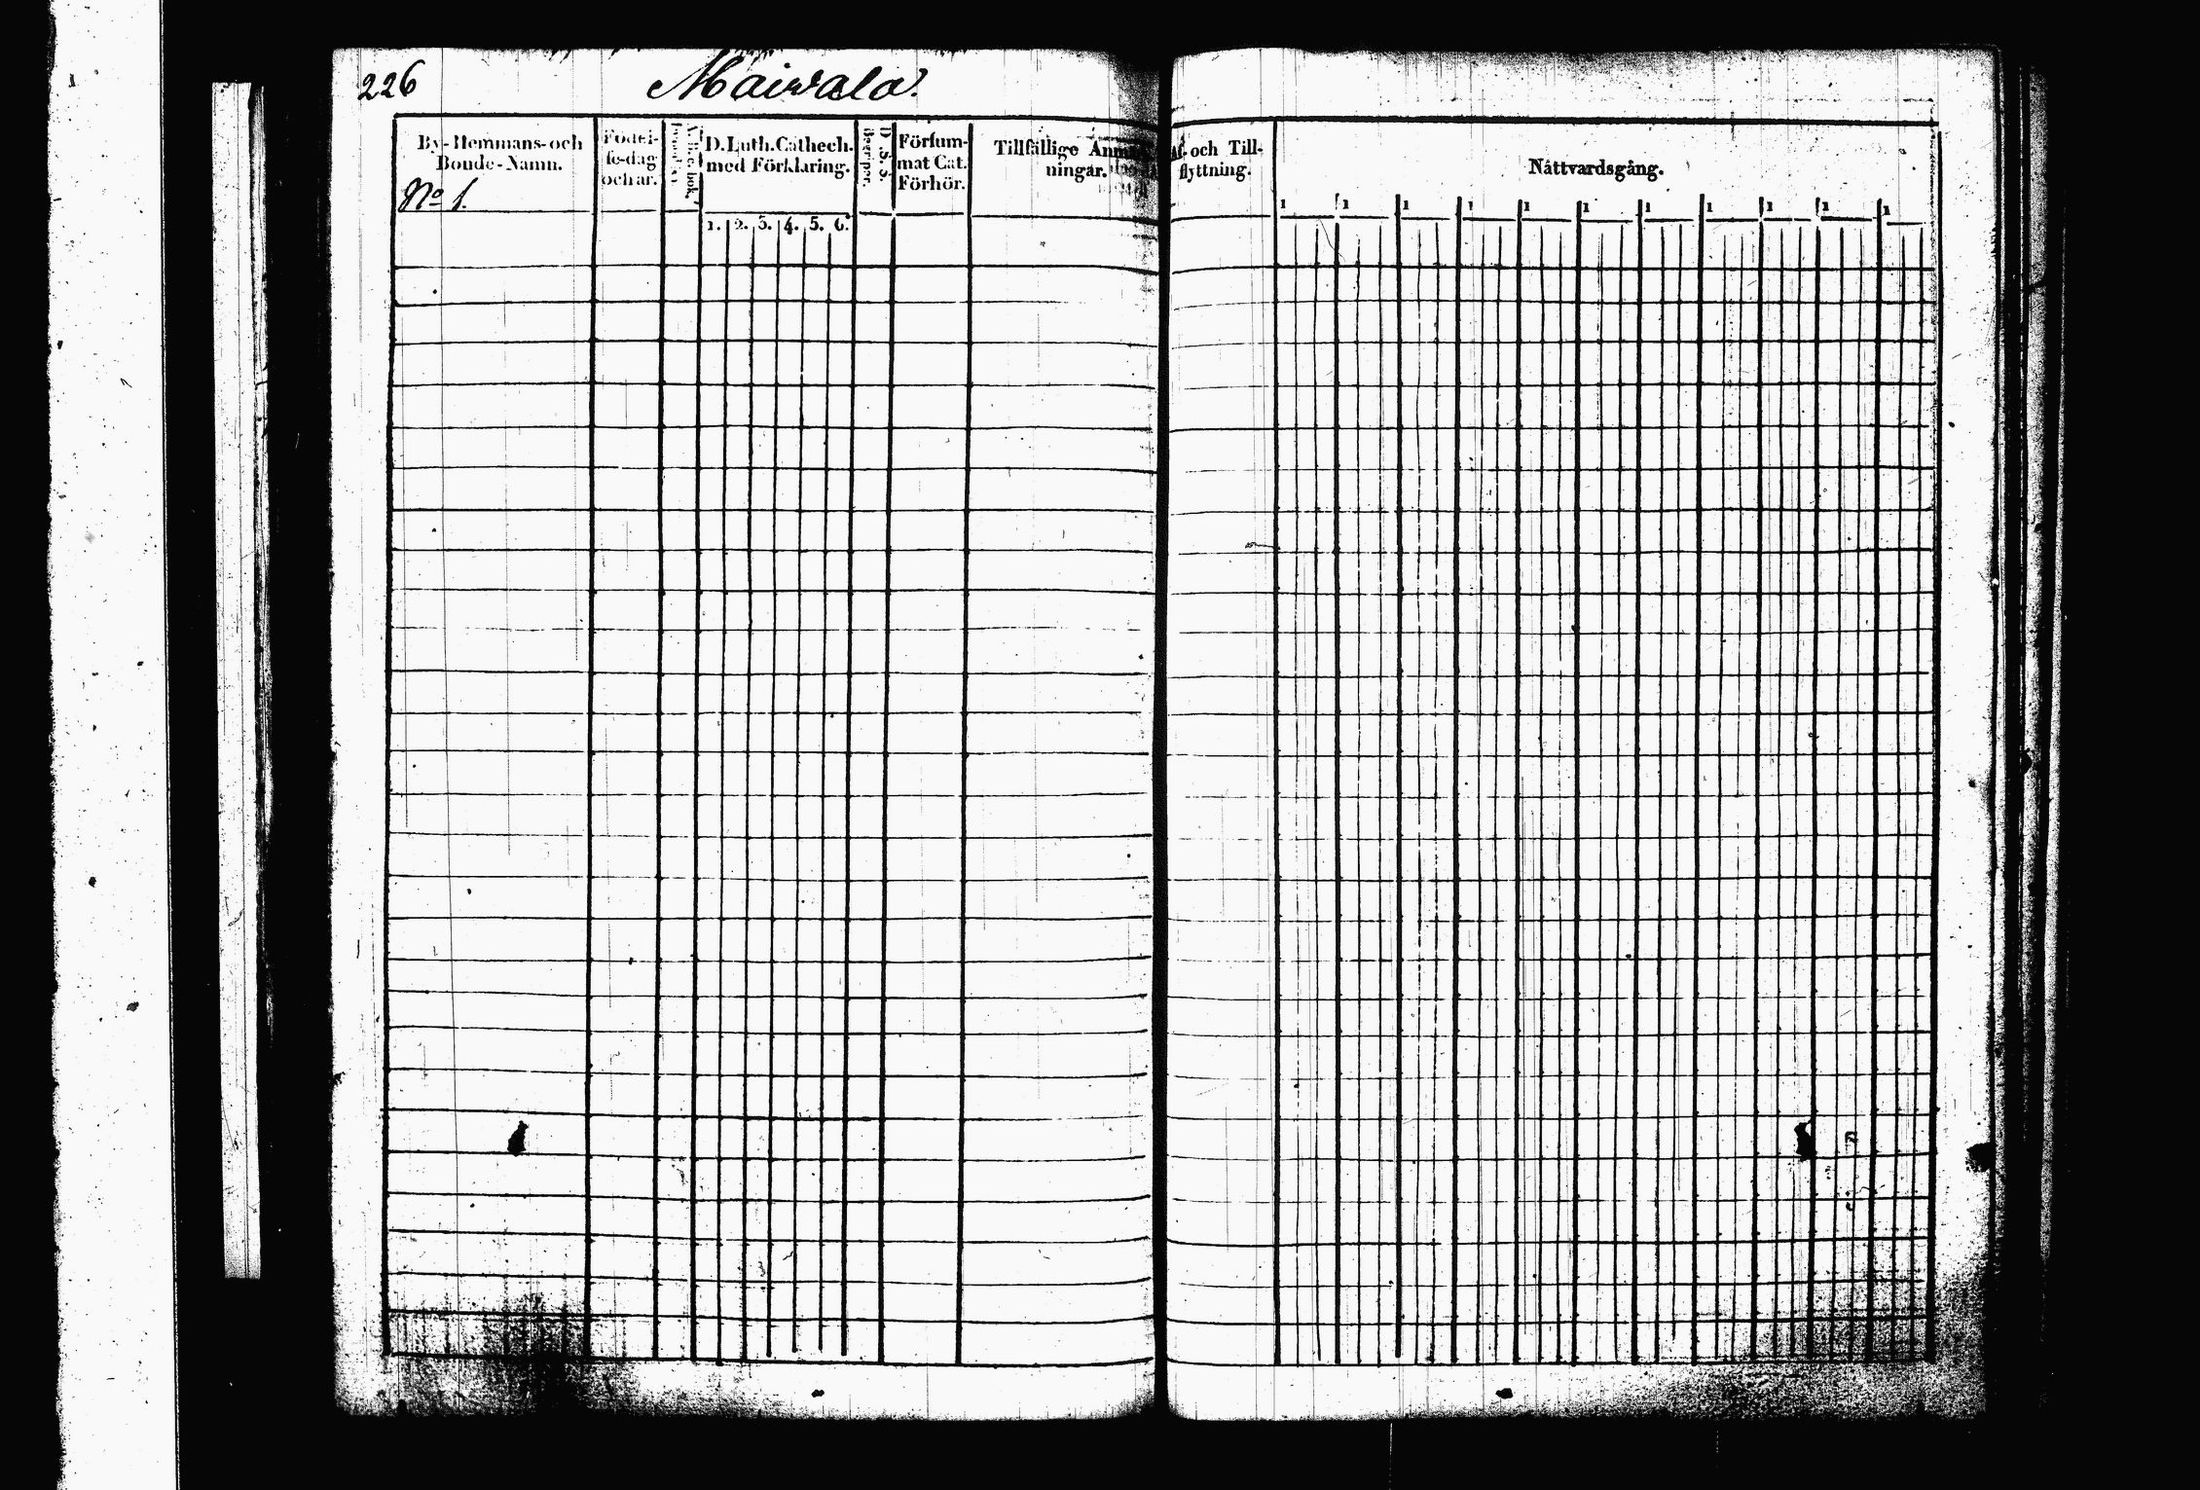 226 Maivala.
By-Hemmans-och
Bonde-Namn.
No 1.
Födel-
se-dag
och år.
D. Luth. Cathech.
med Förklaring.
1. 2. 3. 4. 5. 6.
D. S. S.
Begriper.
Försum-
mat Cat.
Förhör.
Tillfällige Anmärk-
ningar.
Af- och Till-
flyttning.
Nåttvardsgång.
1 1 1 1 1 1 1 1 1 1 1